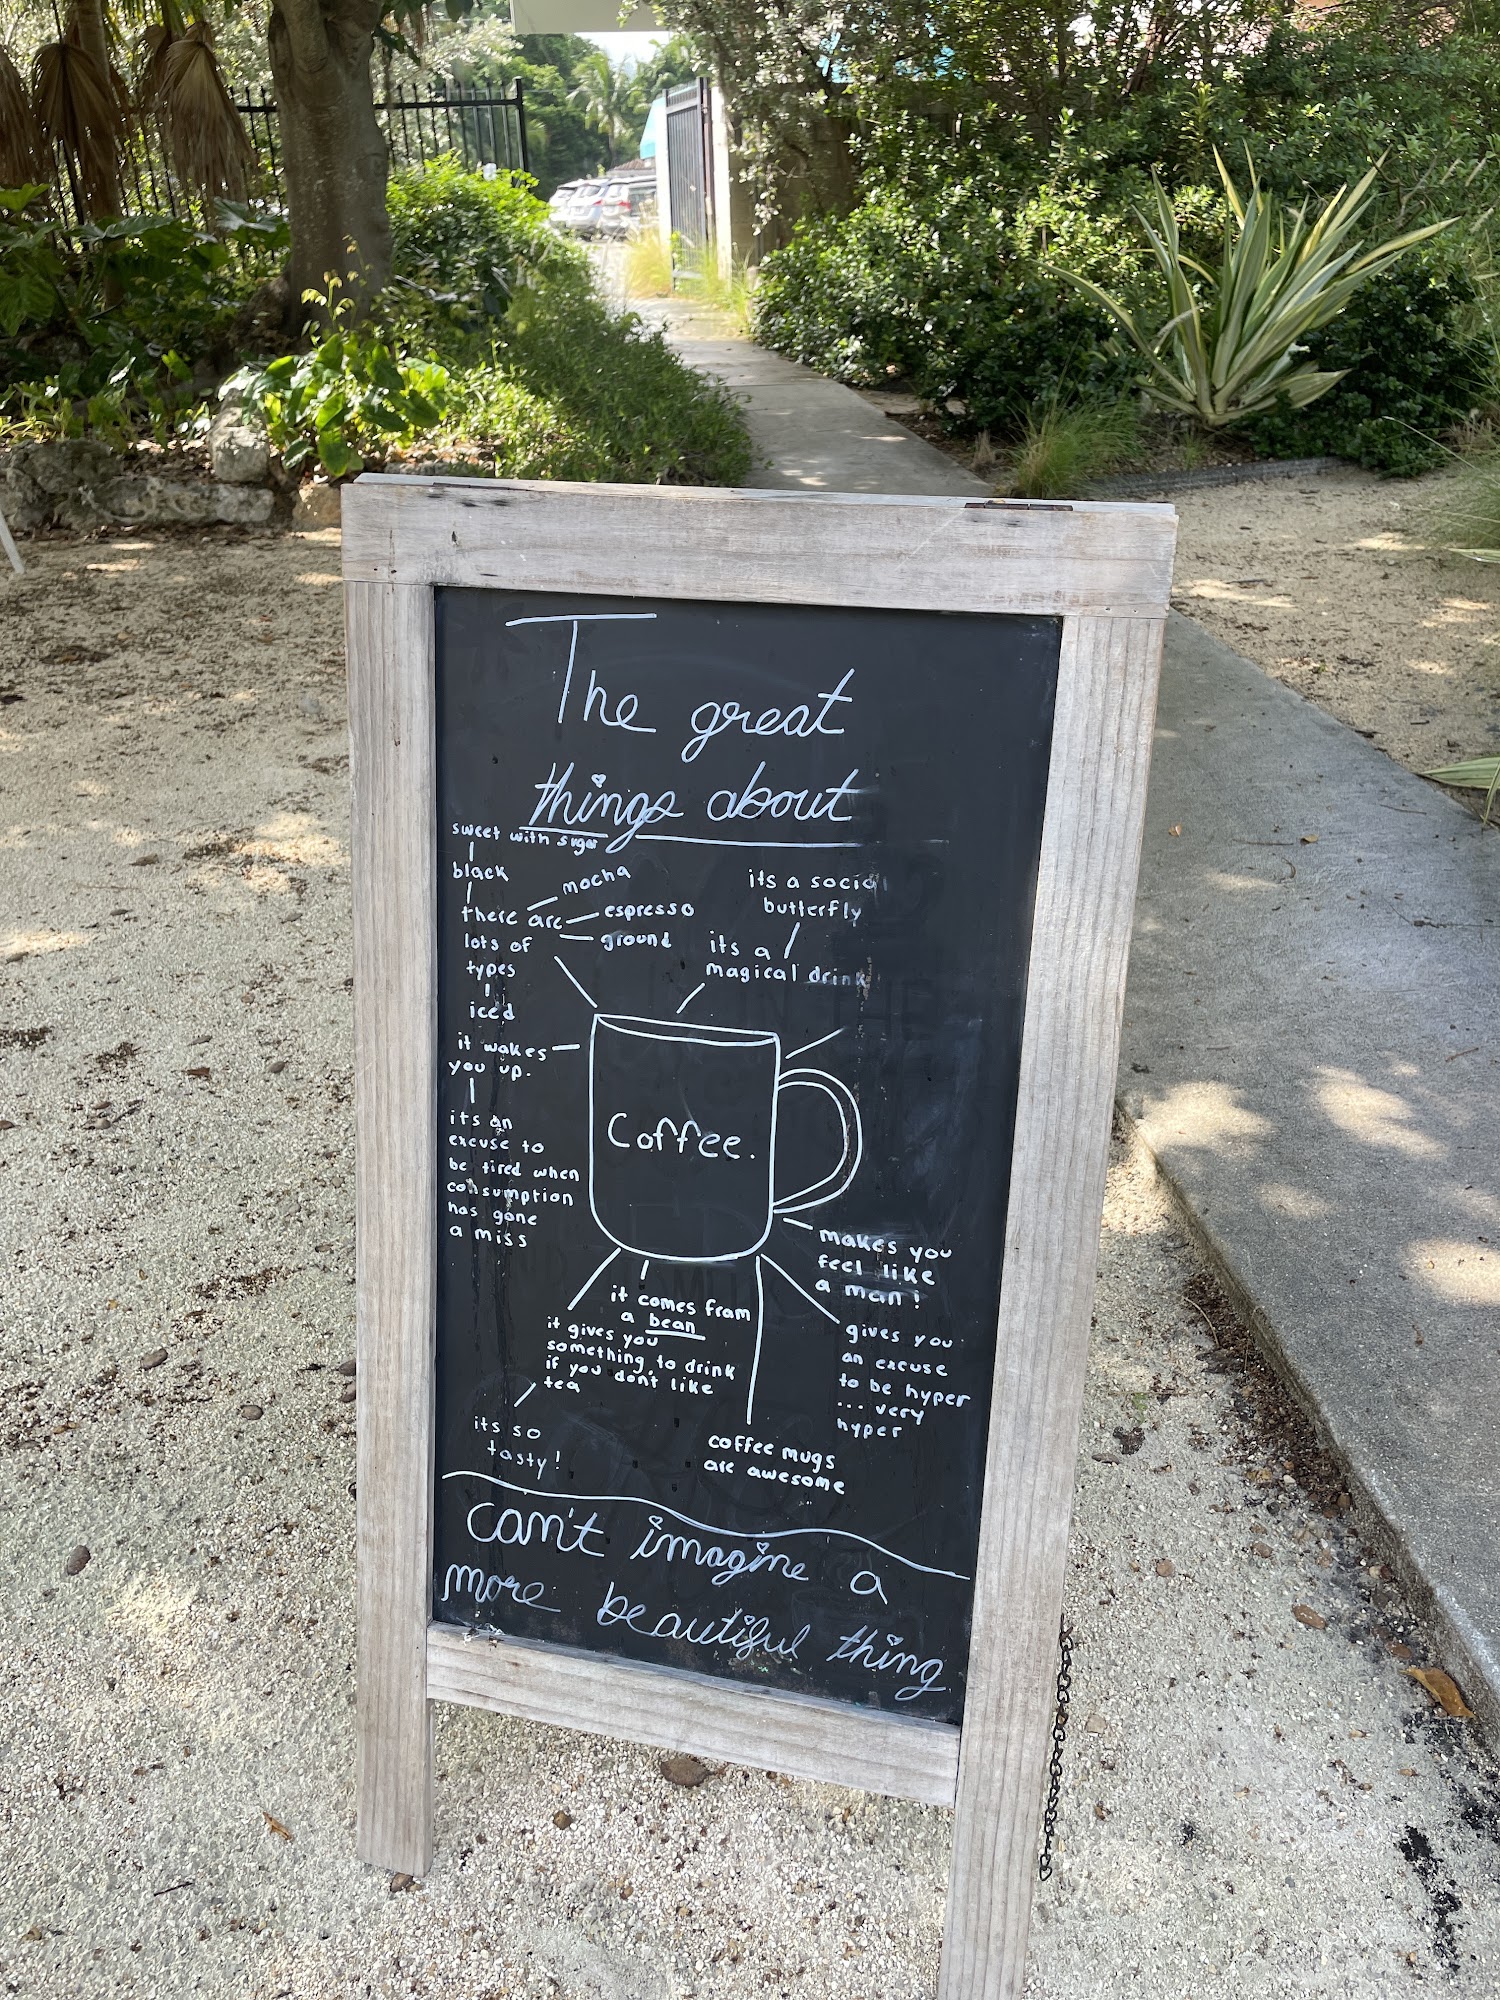 The great
things about
sweet with sugar
black
there are
lots of
types
mocha
espresso
ground
iced
its a social
butterfly
its a
magical drink
it wakes
you up.
its an
excuse to
be tired when
consumption
has gone
a miss
Coffee.
makes you
feel like
a man!
it comes from
a bean
it gives you
something to drink
if you don't like
tea
gives you
an excuse
to be hyper
... very
hyper
its so
tasty!
coffee mugs
are awesome
can't imagine a
more beautiful thing